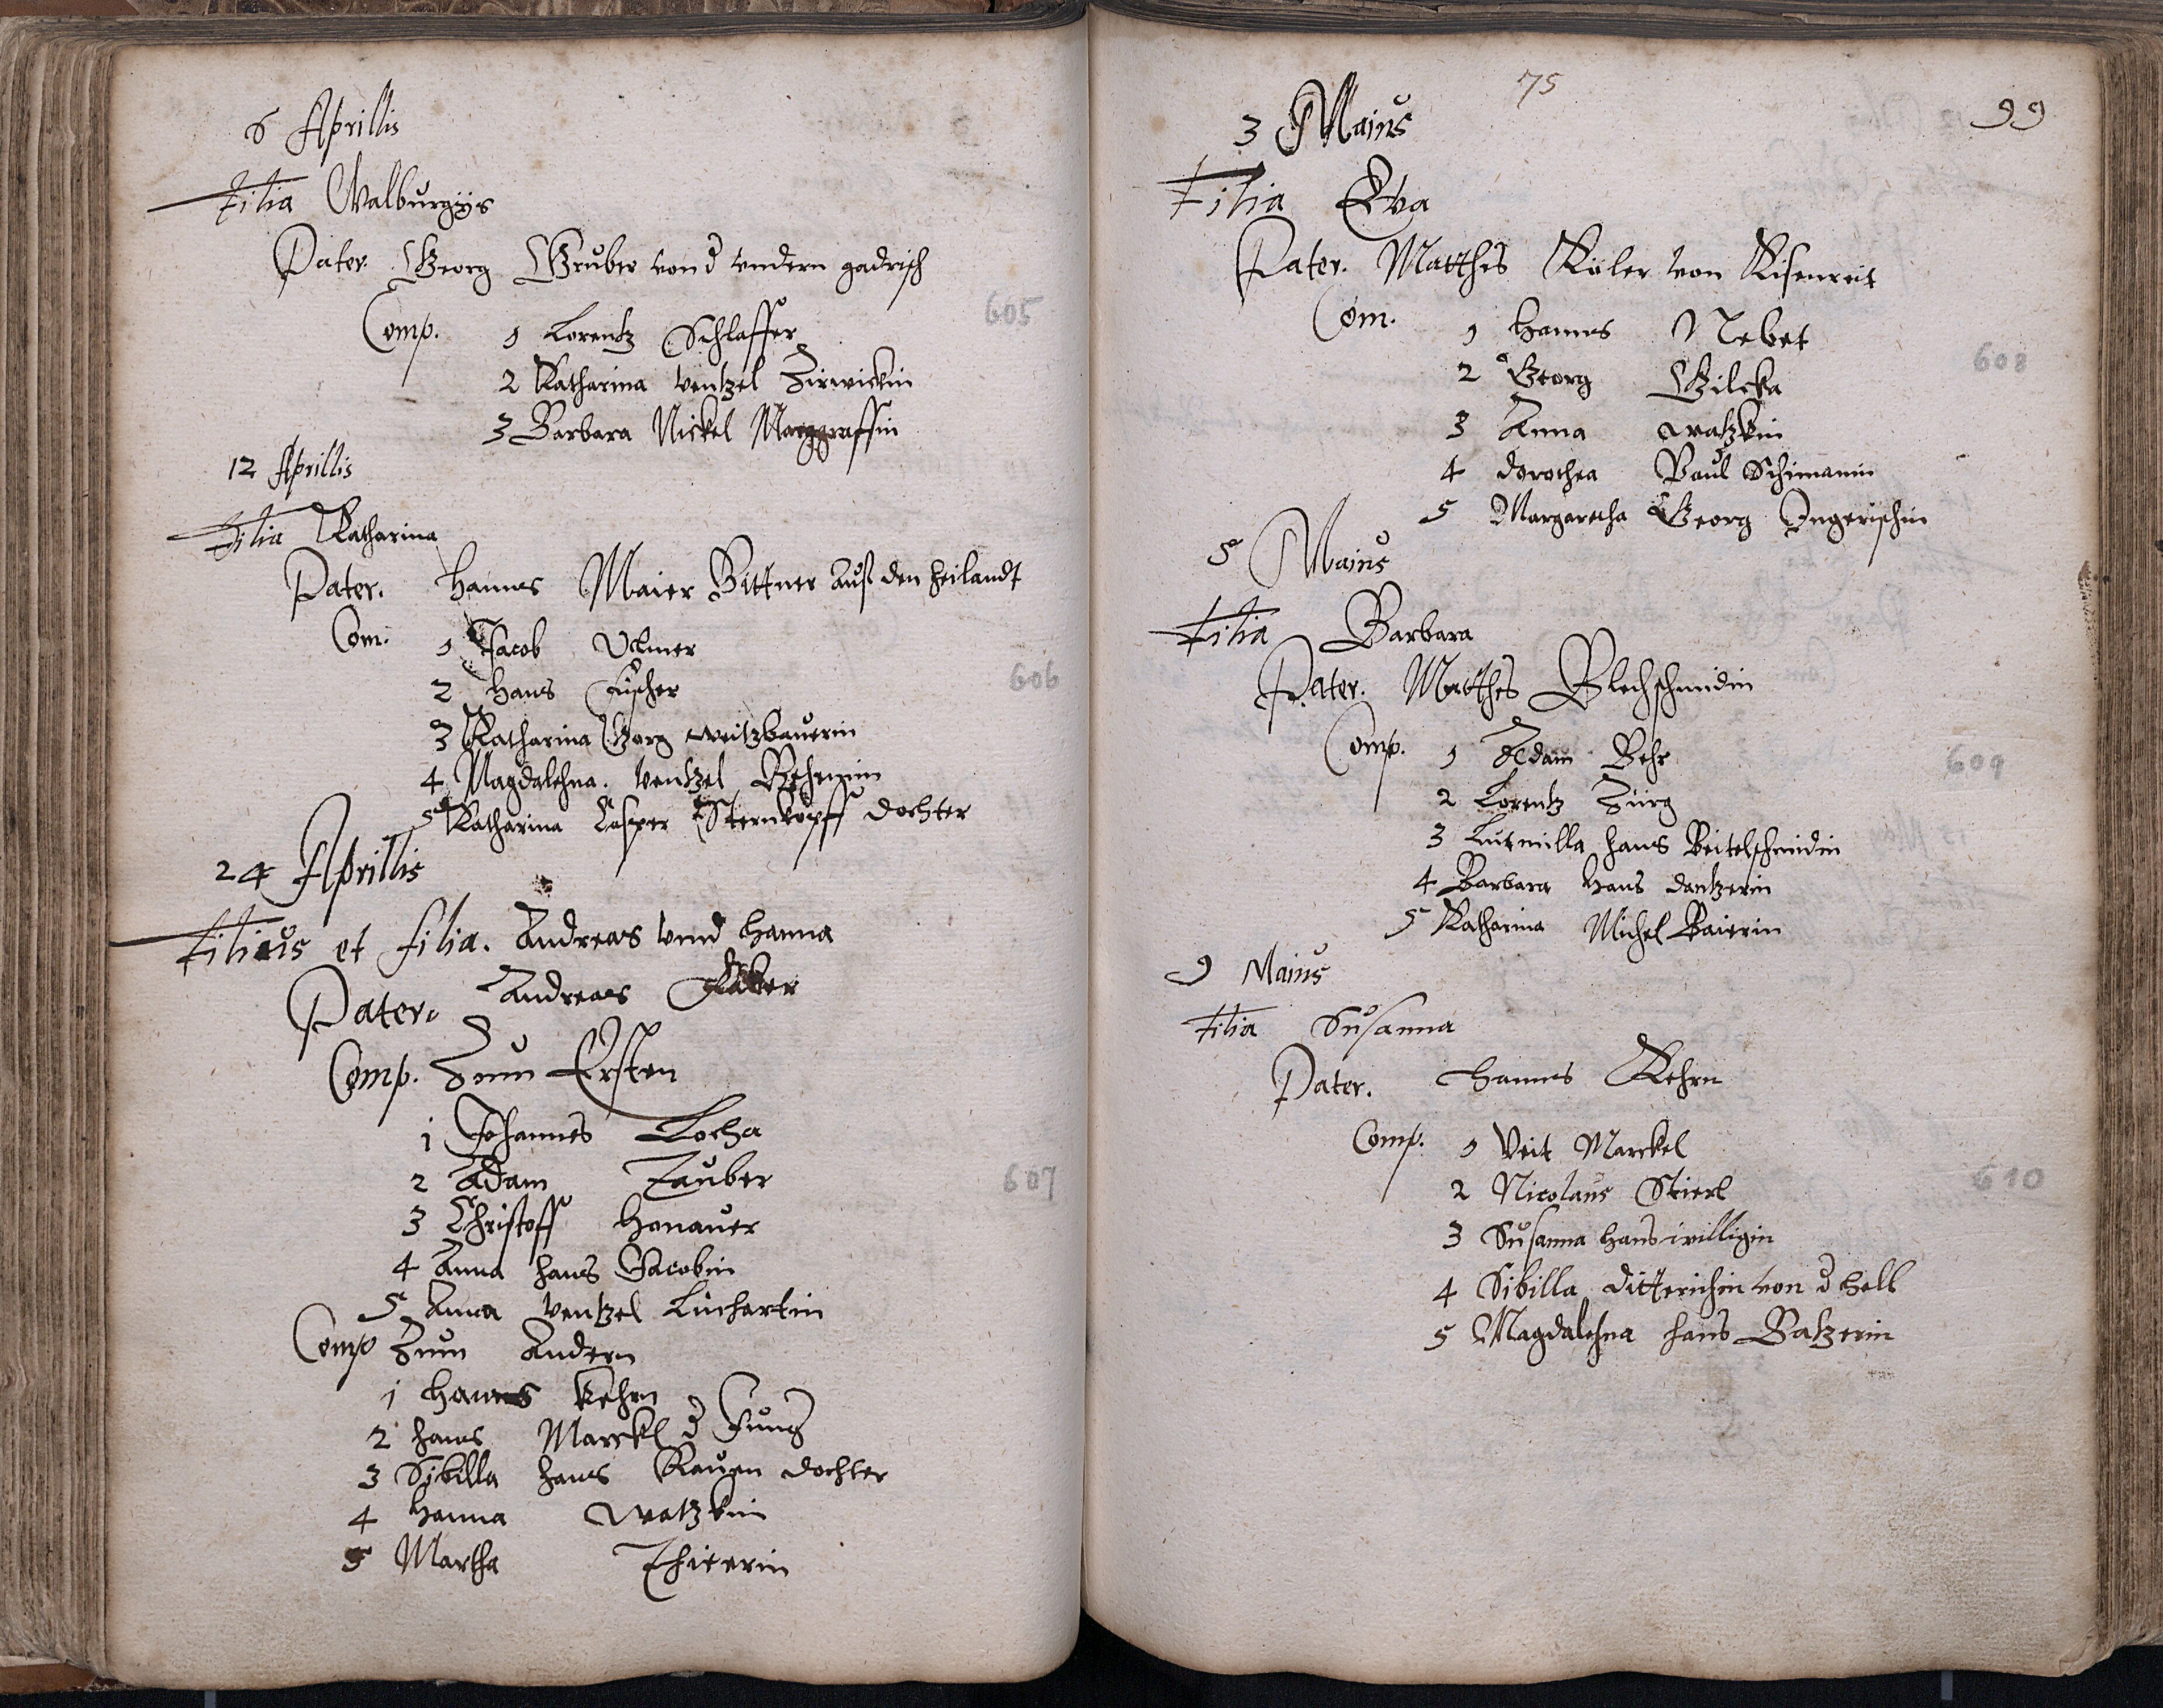 6 Aprillis
Filia Walburgys
Pater. Georg Gruber von d undern gadrisch
Comp. 1 Lorentz Schlaffer
605
2 Katharina Ventzel Zirwickin
3 Barbara Nickel Marggraffin
12 Aprillis
Filia Katharina
Pater. Hannes Maier Bittner auß den heilandt
Com. 1 Jacob Ulmer
2 Hans Fischer
606
3 Katharina Georg weitzbauerin
4 Magdalehna. Ventzel Behemin
5 Katharina Casper Sternkopff dochter
24 Aprillis
Filius et filia. Andreas vnnd Hanna
Pater. Andreas Faber
Comp. Zum Ersten
1 Johannes Locha
2 Adam Tauber
607
3 Christoff Hanauer
4 Anna Hans Jacobin
5 Anna Ventzel Luchartin
Comp Zum Andern
1 Hannes Kehrn
2 Hans Marckl d Jung
3 Sibilla Hans Rauen dochter
4 Hanna Watzkin
5 Martha Thirerin
75
99
3 Maius
Filia Eva
Pater. Matthes Köler von Eisenreit
Com. 1 Hannes Nebet
2 Georg Gilcka
608
3 Anna Watzkin
4 Dorothea Paul Schimanin
5 Margaretha Georg Ingerischin
5 Maius
Filia Barbara
Pater. Matthes Blechschmidin
Comp. 1 Adam Behr
609
2 Lorentz Zürg
3 Lutmilla Hans Beitelschmidin
4 Barbara Hans dantzerin
5 Katharina Michel Baierin
9 Maius
Filia Susanna
Pater. Hannes Kehrn
Comp. 1 Veit Marckel
2 Nicolaus Stierl
610
3 Susanna Hans willigin
4 Sibilla Ditterichin von d Helb
5 Magdalehna Hans Batzerin